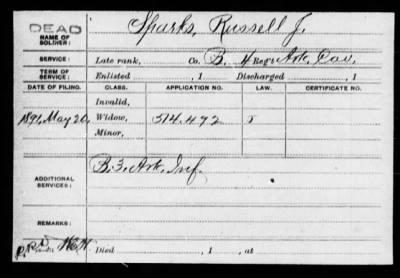 DEAD
NAME OF SOLDIER: Sparks, Russell J.
SERVICE: Late rank, Co. B, 4 Reg't Ark. Cav.
TERM OF SERVICE: Enlisted , 1 Discharged , 1
DATE OF FILING. CLASS. APPLICATION NO. LAW. CERTIFICATE NO.
Invalid,
1891, May 20, Widow, 514.492
Minor,
ADDITIONAL SERVICES: B. 3. Ark. Inf.
REMARKS:
Died , 1 , at